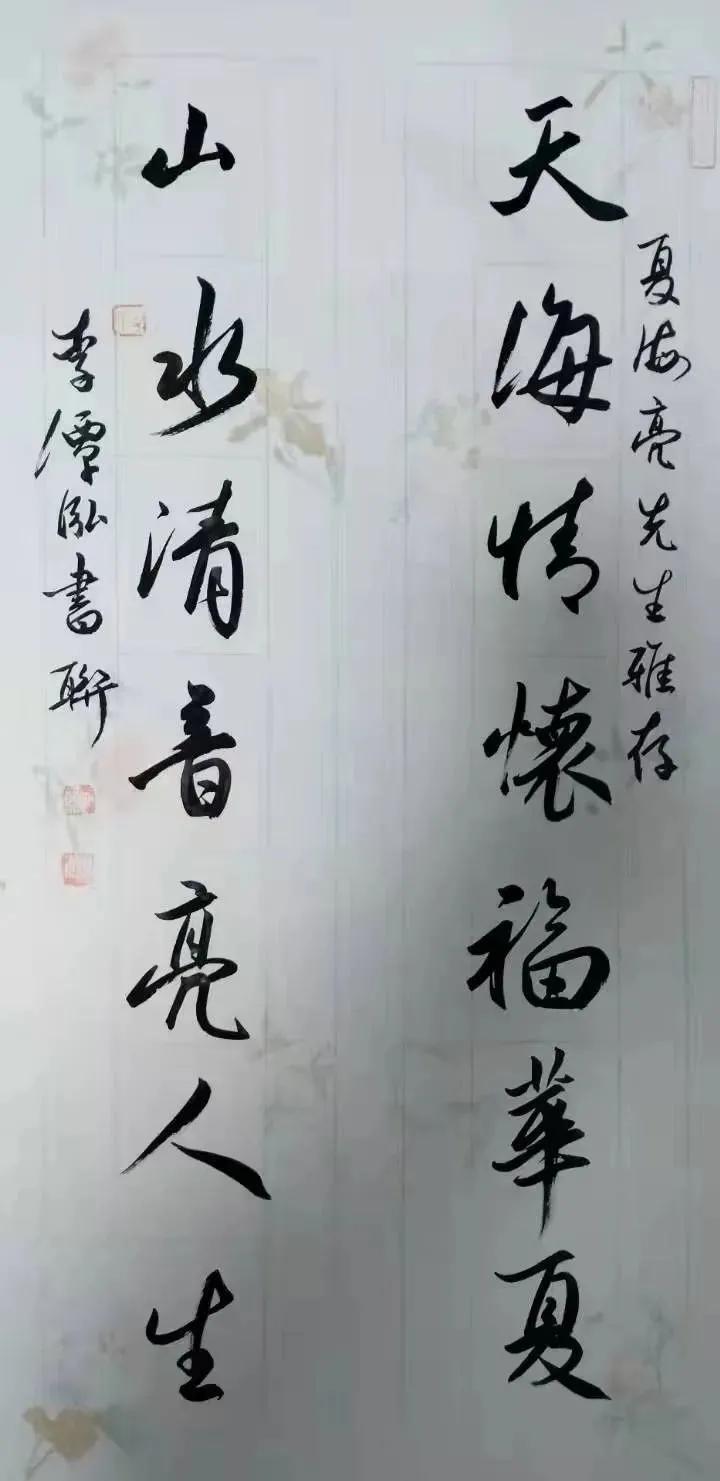 夏海亮先生雅存
天海情懷福華夏
山水清音亮人生
李潭泓書聯